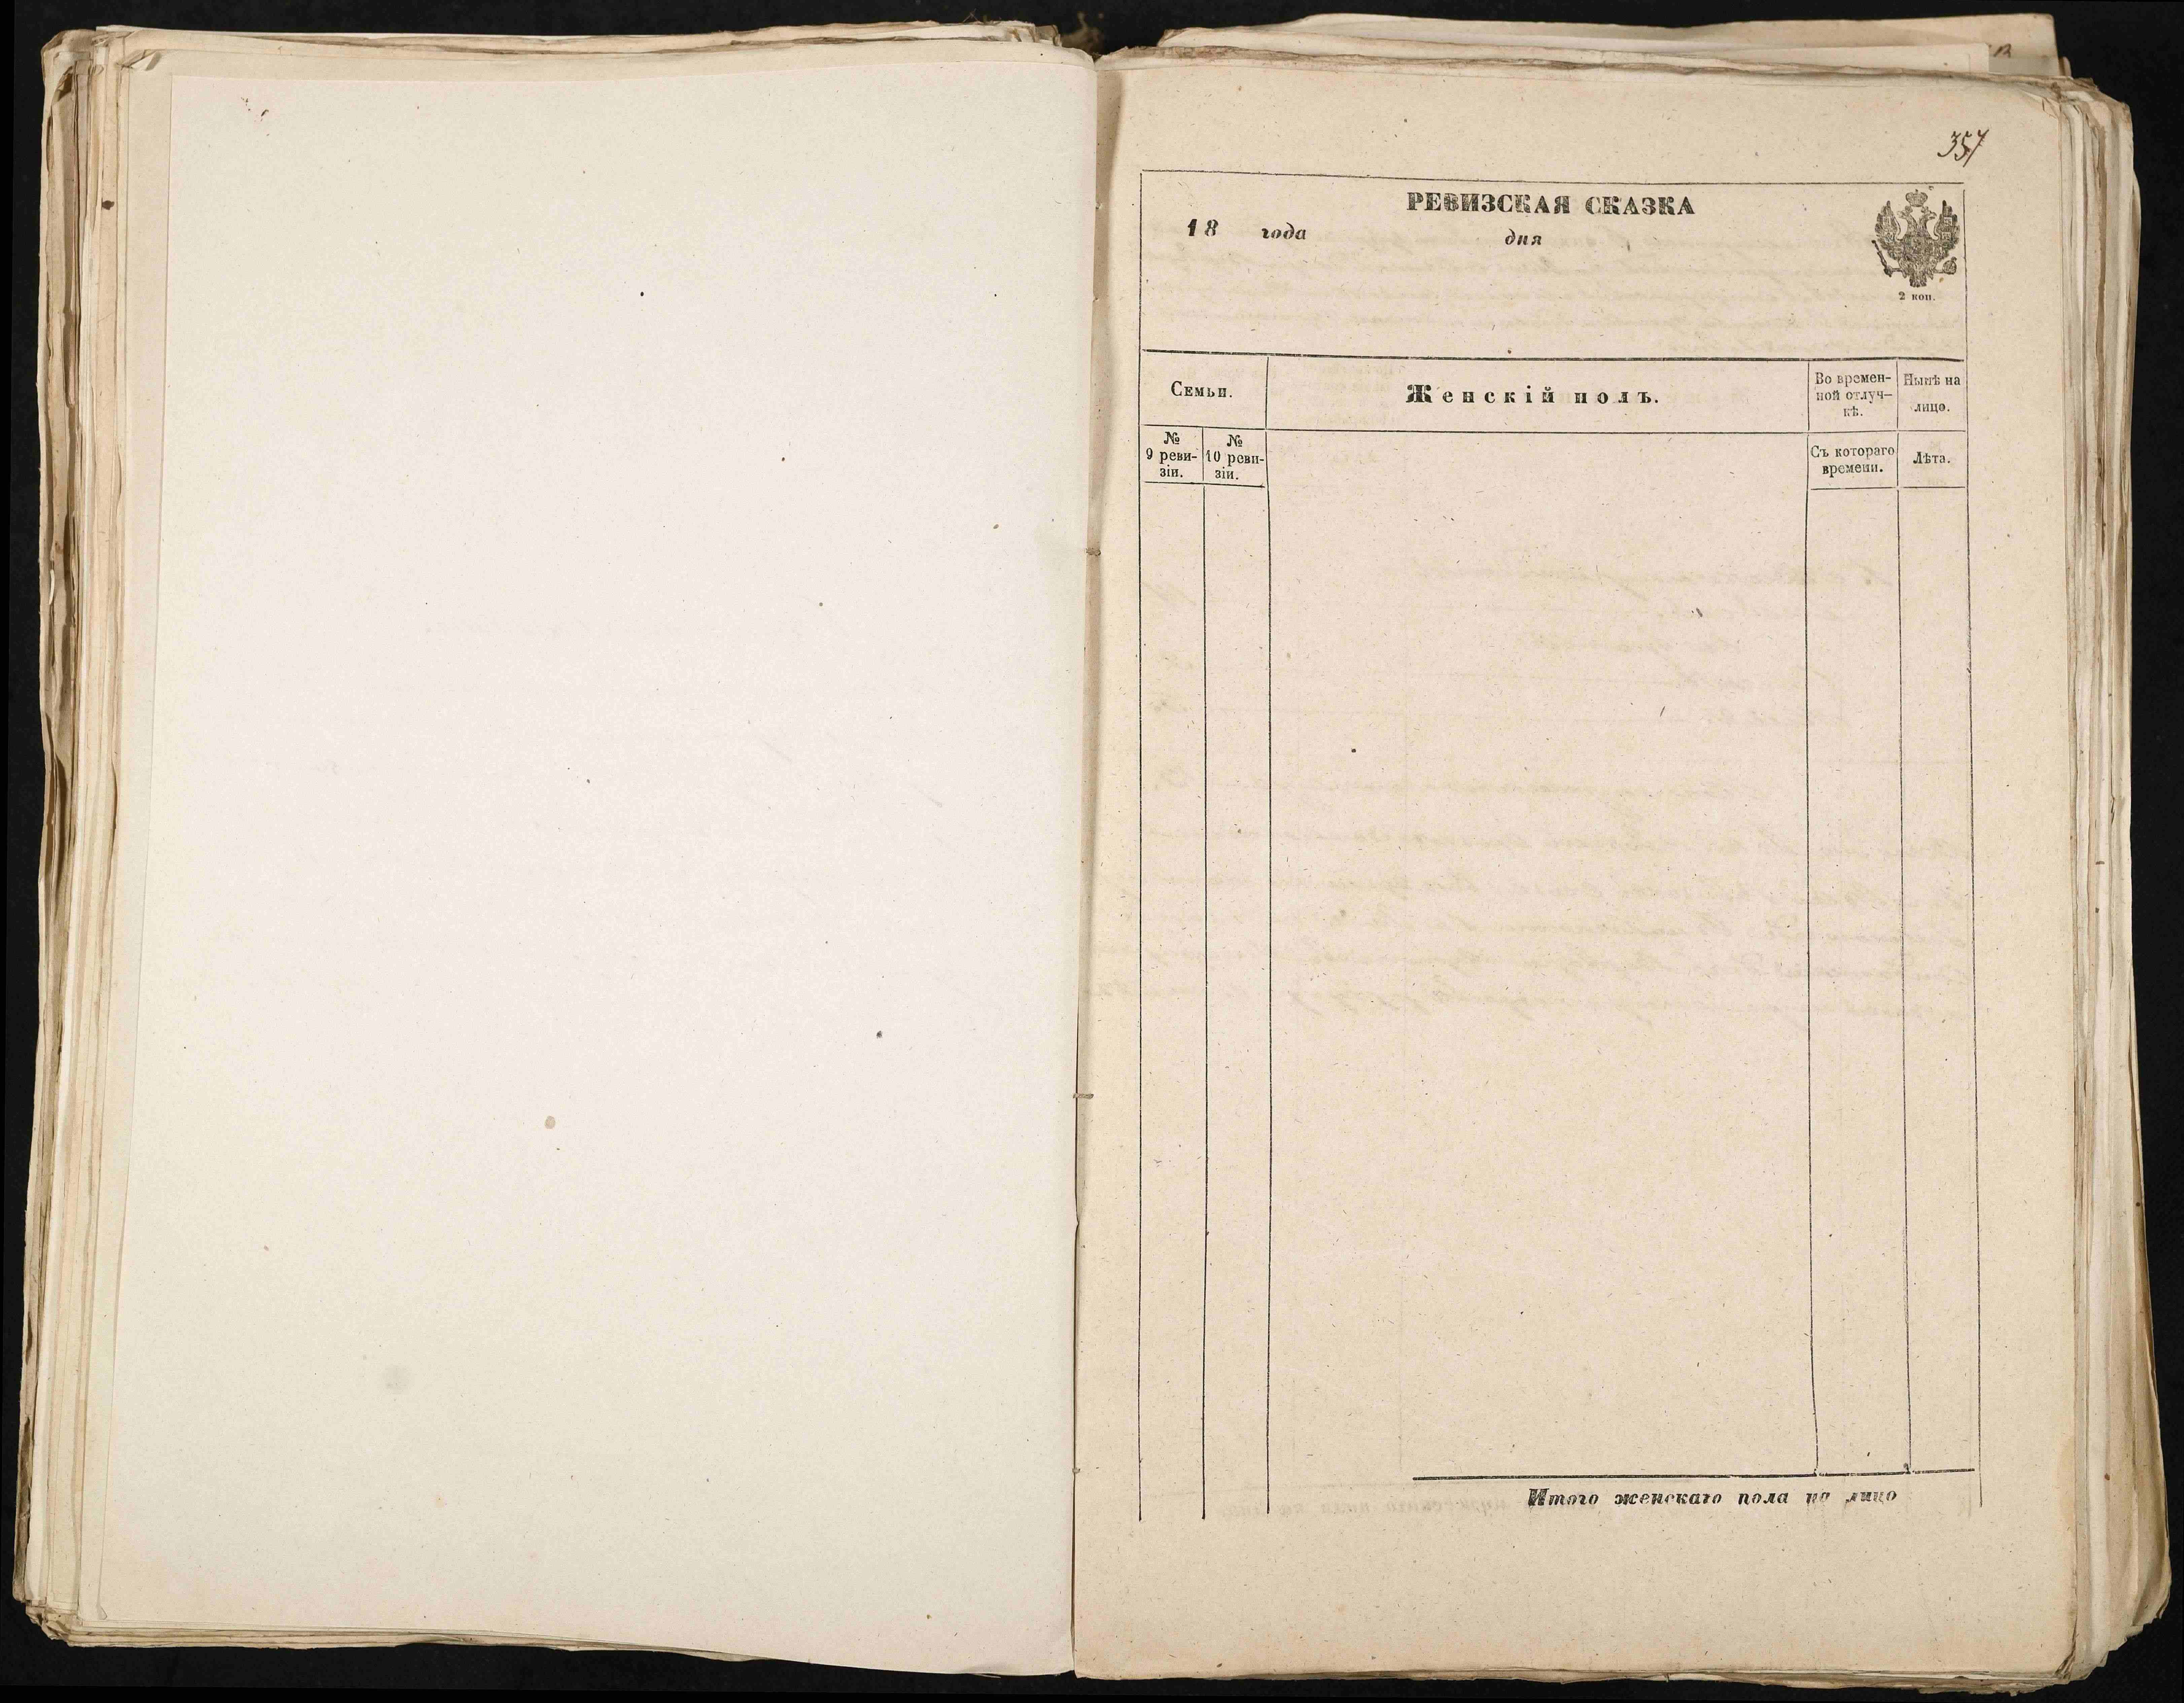 357
РЕВИЗСКАЯ СКАЗКА
18 года дня
2 коп.
Семьи.
Женскій полъ.
Во времен-
ной отлуч-
кѣ.
Нынѣ на
лицо.
№
9 реви-
зіи.
№
10 реви-
зіи.
Съ котораго
времени.
Лѣта.
Итого женскаго пола на лицо